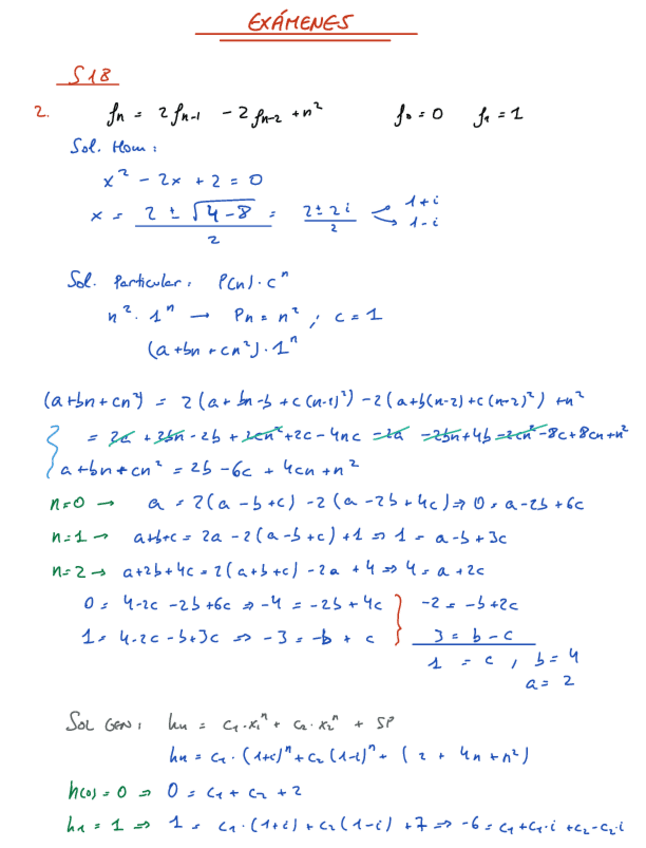 EXÁMENES
S18
2. fn = 2fn-1 - 2fn-2 + n² f0 = 0 f1 = 1
Sol. Hom:
x² - 2x + 2 = 0
x = (2 ± √(4-8))/2 = (2 ± 2i)/2 < 1+i
1-i
Sol. Particular: P(n) · cⁿ
n² · 1ⁿ → Pn = n² ; c = 1
(a + bn + cn²) · 1ⁿ
(a+bn+cn²) = 2(a + bn-b + c(n-1)²) - 2(a+b(n-2)+c(n-2)²) + n²
= 2a + 2bn - 2b + 2cn² + 2c - 4nc - 2a - 2bn + 4b - 2cn² - 8c + 8cn + n²
a + bn + cn² = 2b - 6c + 4cn + n²
n=0 → a = 2(a - b + c) - 2(a - 2b + 4c) ⇒ 0 = a - 2b + 6c
n=1 → a+b+c = 2a - 2(a-b+c) + 1 ⇒ 1 = a - b + 3c
n=2 → a+2b+4c = 2(a+b+c) - 2a + 4 ⇒ 4 = a + 2c
0 = 4-2c - 2b + 6c ⇒ -4 = -2b + 4c } -2 = -b + 2c
1 = 4-2c - b + 3c ⇒ -3 = -b + c } 3 = b - c
1 = c , b = 4
a = 2
SOL GEN: hn = c1 · x1ⁿ + c2 · x2ⁿ + SP
hn = c1 · (1+i)ⁿ + c2 (1-i)ⁿ + (2 + 4n + n²)
h(0) = 0 ⇒ 0 = c1 + c2 + 2
h1 = 1 ⇒ 1 = c1 · (1+i) + c2 (1-i) + 7 ⇒ -6 = c1 + c1·i + c2 - c2·i